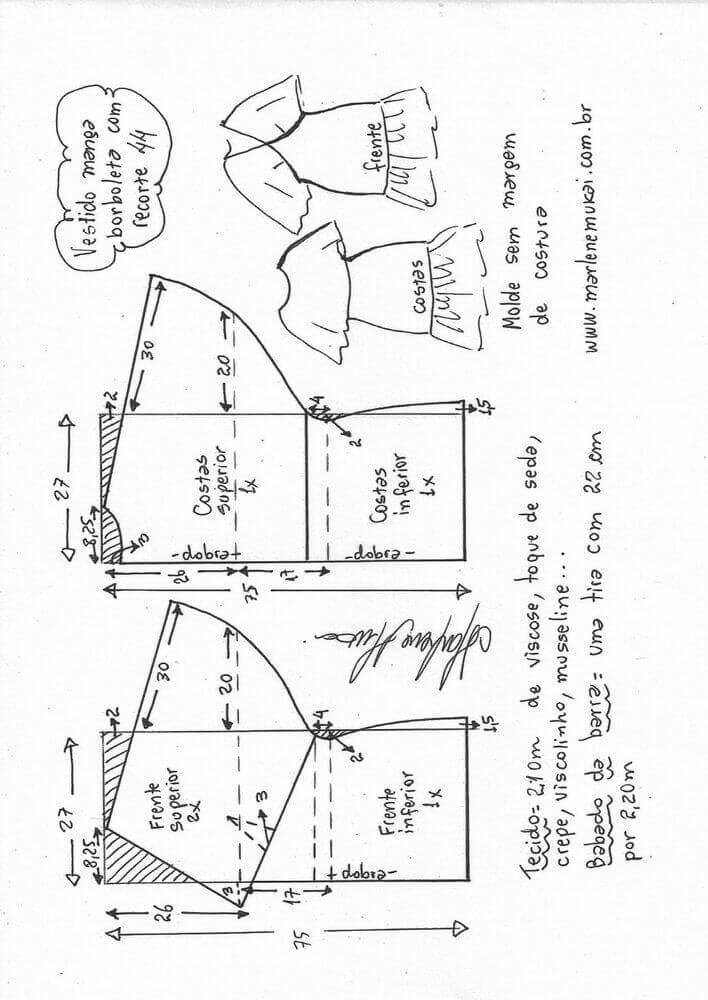 Vestido manga
borboleta com
recorte 44
frente
costas
Molde sem margem
de costura
www.marlenemukai.com.br
27
8,25
2
30
20
3
Costas
superior
1x
dobra
26
17
75
4
2
Costas
inferior
1x
dobra
1,5
27
8,25
2
30
20
Frente
superior
2x
3
1
3
26
17
75
4
2
Frente
inferior
1x
dobra
1,5
Tecido= 2,10m de viscose, toque de seda,
crepe, viscolinho, musseline...
Babado da barra= uma tira com 22 cm
por 2,20m